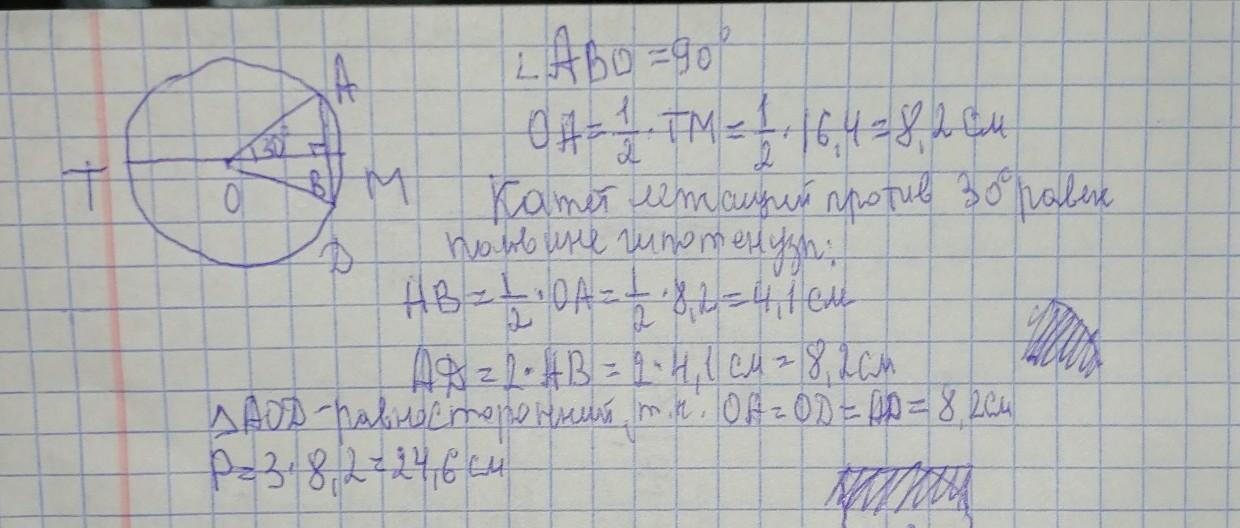 ∠ABO = 90°
OA = 1/2 · TM = 1/2 · 16,4 = 8,2 см
Катет лежащий против 30° равен
половине гипотенузы:
AB = 1/2 · OA = 1/2 · 8,2 = 4,1 см
AD = 2 · AB = 2 · 4,1 см = 8,2 см
△AOD - равносторонний, т.к. OA = OD = AD = 8,2 см
P = 3 · 8,2 = 24,6 см
A
30°
T
O
B
M
D